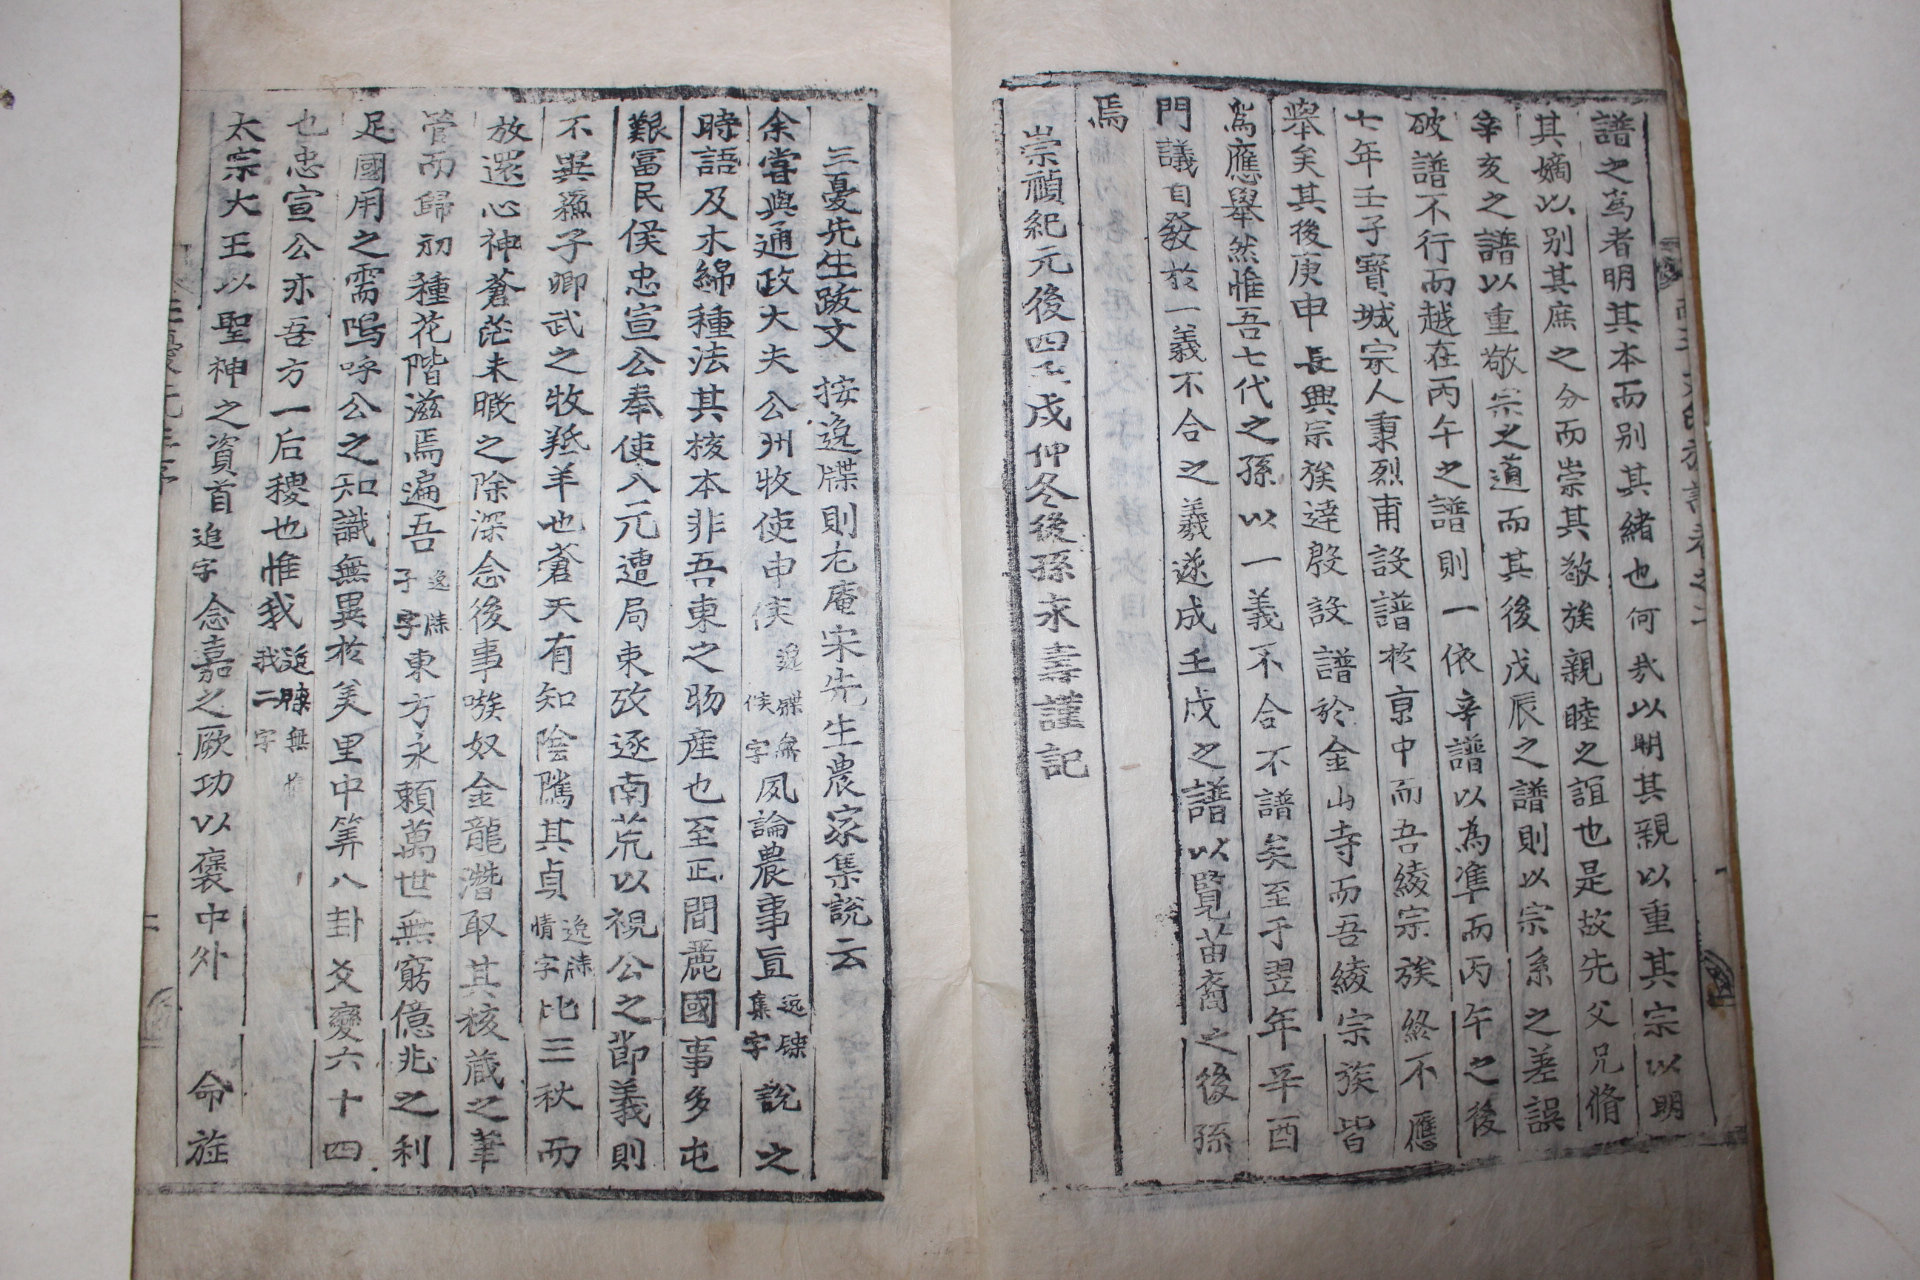 譜之爲者明其本而别其緒也何㢤以明其親以重其宗以明
其嫡以别其庶之分而崇其敬族親睦之誼也是故先父兄脩
辛亥之譜以重敬宗之道而其後戊辰之譜則以宗系之差誤
破譜不行而越在丙午之譜則一依辛譜以為準而丙午之後
七年壬子寳城宗人秉烈甫設譜於京中而吾綾宗族終不應
舉矣其後庚申長興宗族達殷設譜於金山寺而吾綾宗族皆
爲應舉然惟吾七代之孫以一義不合不譜矣至于翌年辛酉
門議自發於一義不合之義遂成壬戌之譜以賢苗裔之後孫
焉
崇禎紀元後四壬戌仲冬後孫永壽謹記
三憂先生跋文 按逸牒則尤庵宋先生農家集說云
余嘗與通政大夫公州牧使申侯逸牒無侯字夙論農事亘逸牒集字說之
時語及木綿種法其核本非吾東之物産也至正間麗國事多屯
艱富民侯忠宣公奉使入元遭局束孜逐南荒以視公之節義則
不異蘓子卿武之牧羝羊也蒼天有知陰隲其貞逸牒情字比三秋而
放還心神蒼茫未暇之除深念後事嗾奴金龍潛取其核藏之筆
管而歸初種花階滋焉遍吾逸牒子字東方永賴萬世無窮億兆之利
足國用之需嗚呼公之知識無異於羑里中筭八卦爻變六十四
也忠宣公亦吾方一后稷也惟我逸牒無我二字
太宗大王以聖神之資首追字念嘉之厥功以褒中外 命旌